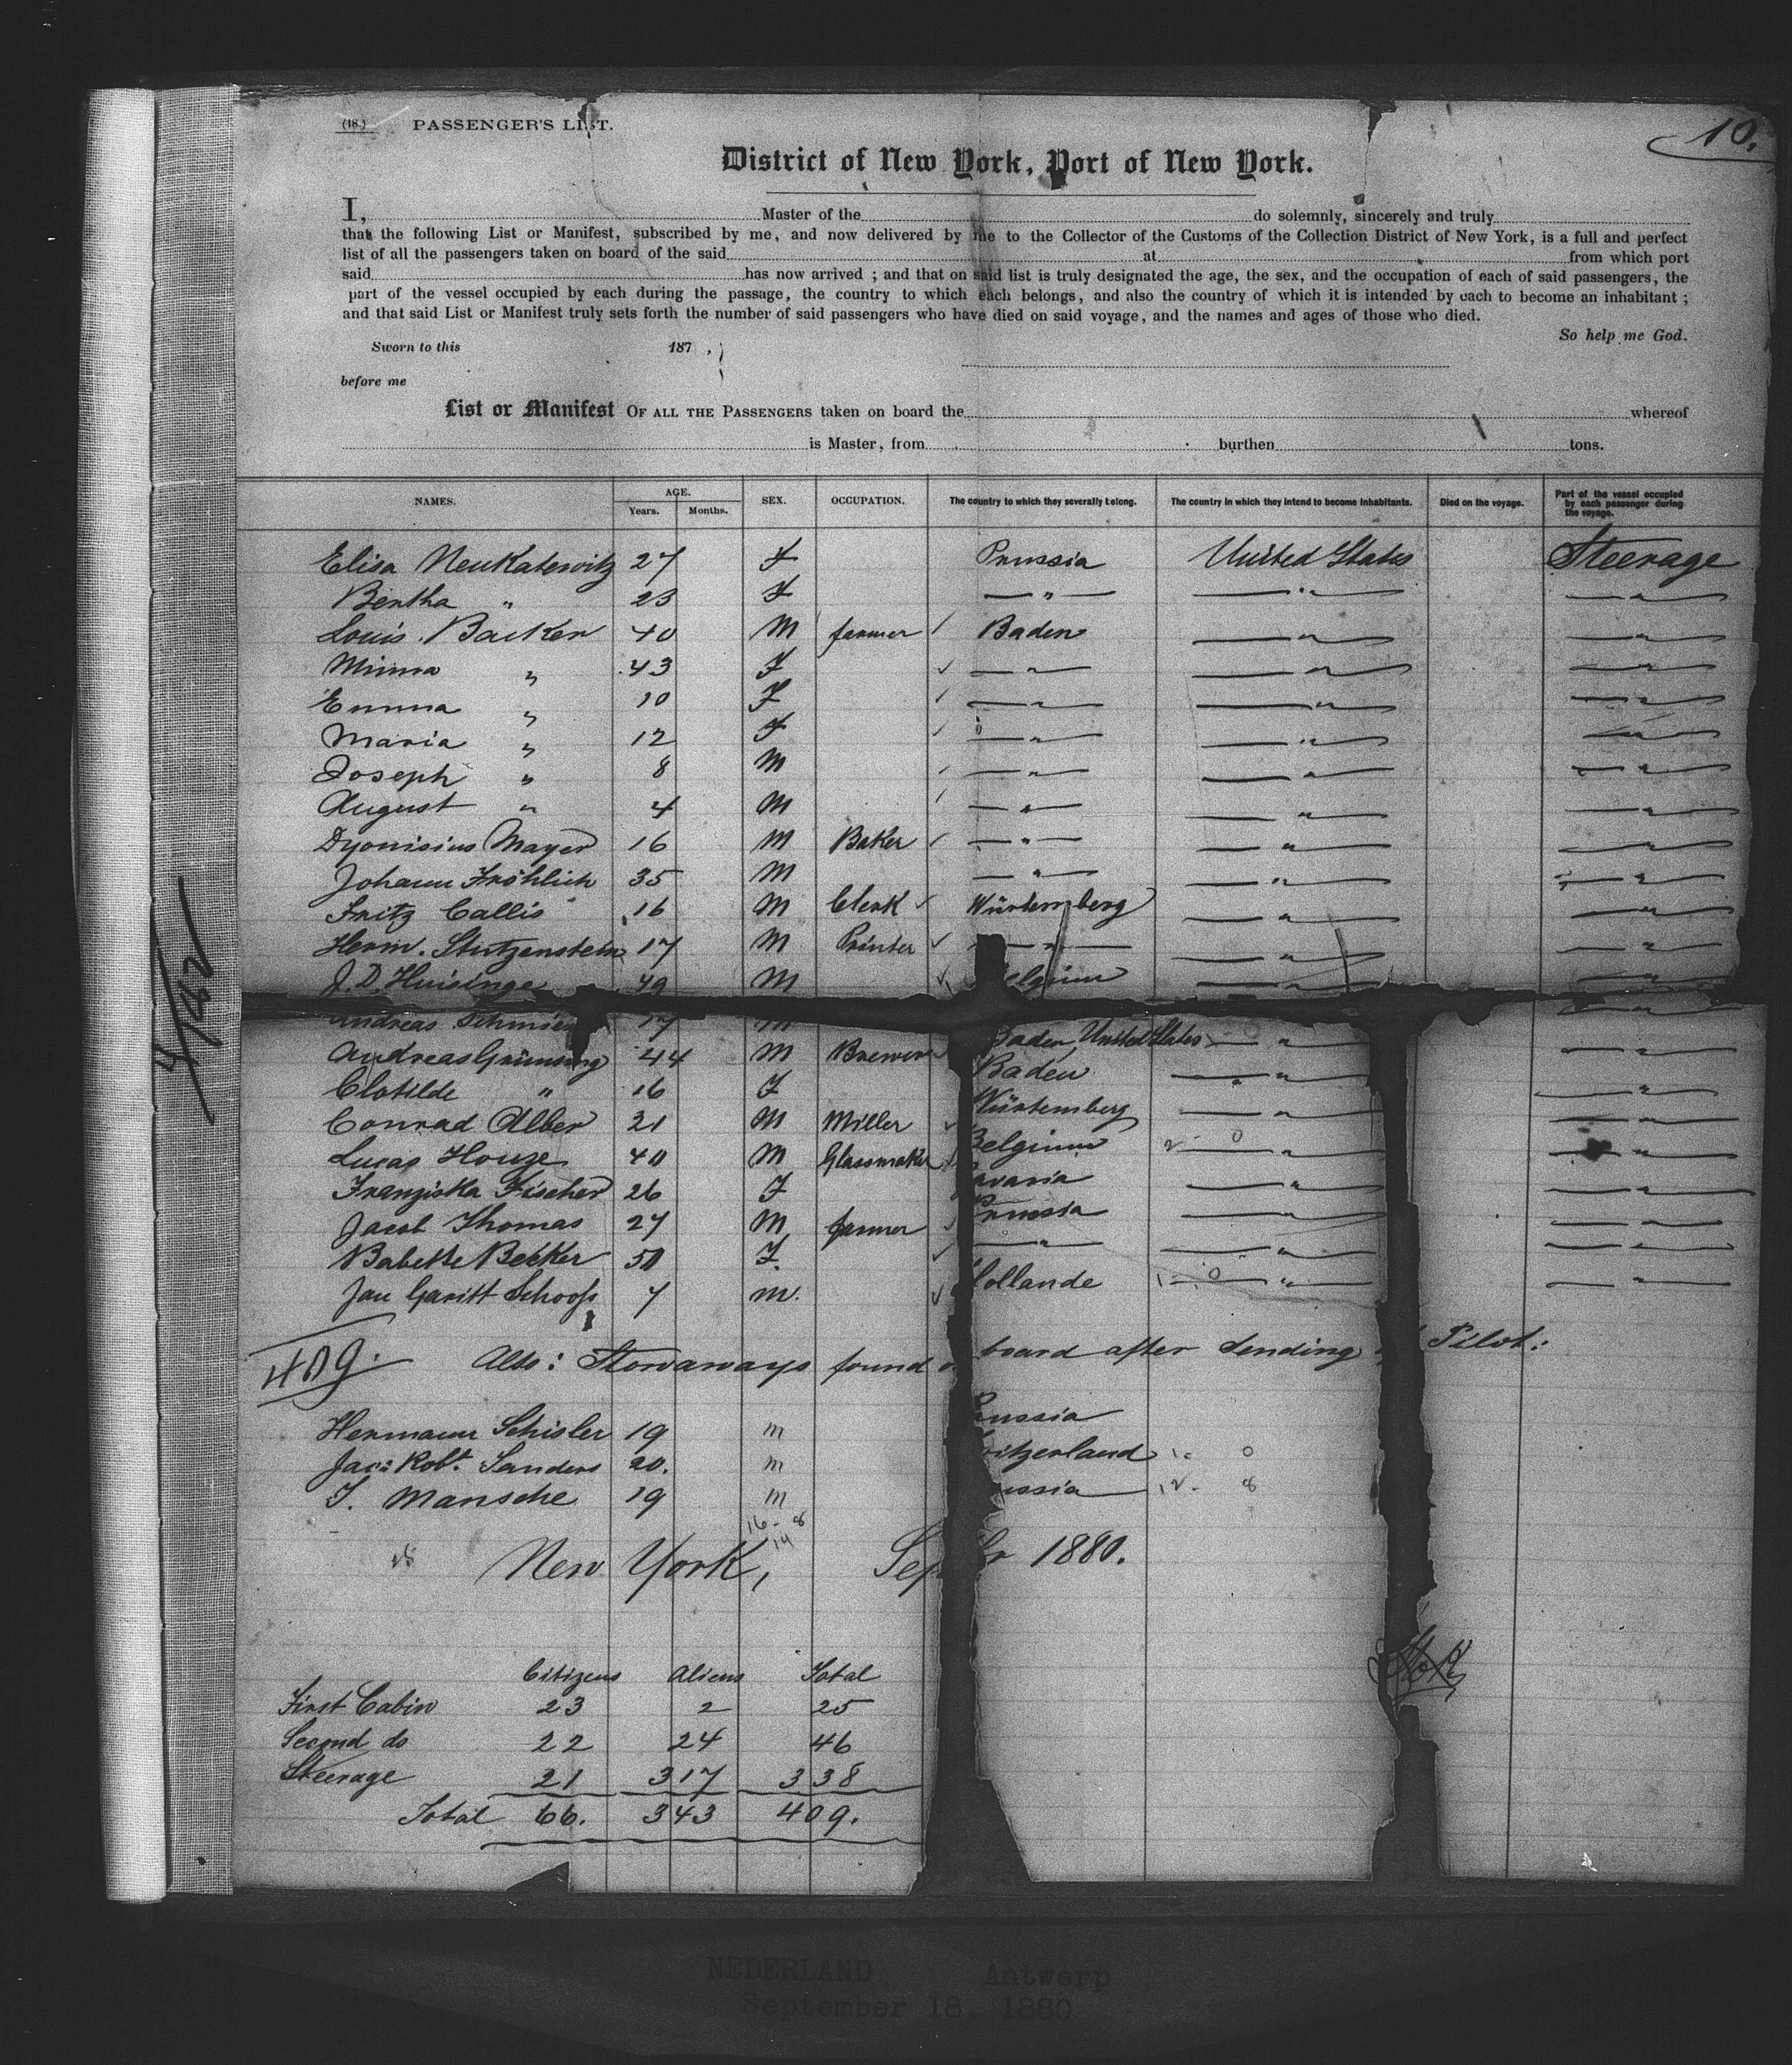 (18.) PASSENGER'S LIST.
10.
District of New York, Port of New York.
I, Master of the do solemnly, sincerely and truly
that the following List or Manifest, subscribed by me, and now delivered by me to the Collector of the Customs of the Collection District of New York, is a full and perfect
list of all the passengers taken on board of the said at from which port
said has now arrived ; and that on said list is truly designated the age, the sex, and the occupation of each of said passengers, the
part of the vessel occupied by each during the passage, the country to which each belongs, and also the country of which it is intended by each to become an inhabitant ;
and that said List or Manifest truly sets forth the number of said passengers who have died on said voyage, and the names and ages of those who died.
So help me God.
Sworn to this 187 ,
before me
List or Manifest OF ALL THE PASSENGERS taken on board the whereof
is Master, from burthen tons.
NAMES. AGE. Years. Months. SEX. OCCUPATION. The country to which they severally belong. The country in which they intend to become inhabitants. Died on the voyage. Part of the vessel occupied by each passenger during the voyage.
Elisa Neukatewitz 27 F Prussia United States Steerage
Bertha " 23 F " " "
Louis Backer 40 M farmer Baden " "
Minna " 43 F " " "
Emma " 10 F " " "
Maria " 12 F " " "
Joseph " 8 M " " "
August " 4 M " " "
Dyonisius Mayer 16 M Baker " " "
Johann Fröhlich 35 M " " "
Fritz Callis 16 M Clerk Würtemberg " "
Herm. Stutzenstein 17 M Printer " " "
J. D. Huisinge 49 M elgium "
Andreas 17 M Baden United States " "
Andreas Grünsing 44 M Brewer Baden " "
Clotilde " 16 F Würtemberg " "
Conrad Alber 21 M Miller Belgium 2 0 " "
Lucas Houze 40 M Glassmaker avaria " "
Franziska Fischer 26 F russia " "
Jacob Thomas 27 M farmer " " "
Babette Becker 50 F ollande 1 0 " "
Jan Garitt Schoofs 7 M.
409. Also: Stowaways found board after sending Pilot:
Hermann Schisler 19 M ussia
Jac: Robt. Sanders 20. M itzerland 1. 0
J. Mansche 19 M ussia 12. 8
16 - 8
14
New York, Sep 1880.
Citizens Aliens Total
First Cabin 23 2 25
Second do 22 24 46
Steerage 21 317 338
Total 66. 343 409.
NEDERLAND Antwerp
September 18, 1880